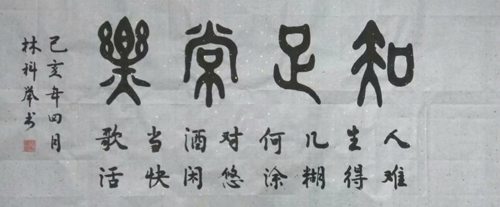 知足常樂
人生几何对酒当歌
难得糊涂悠闲快活
己亥年四月
林科举书